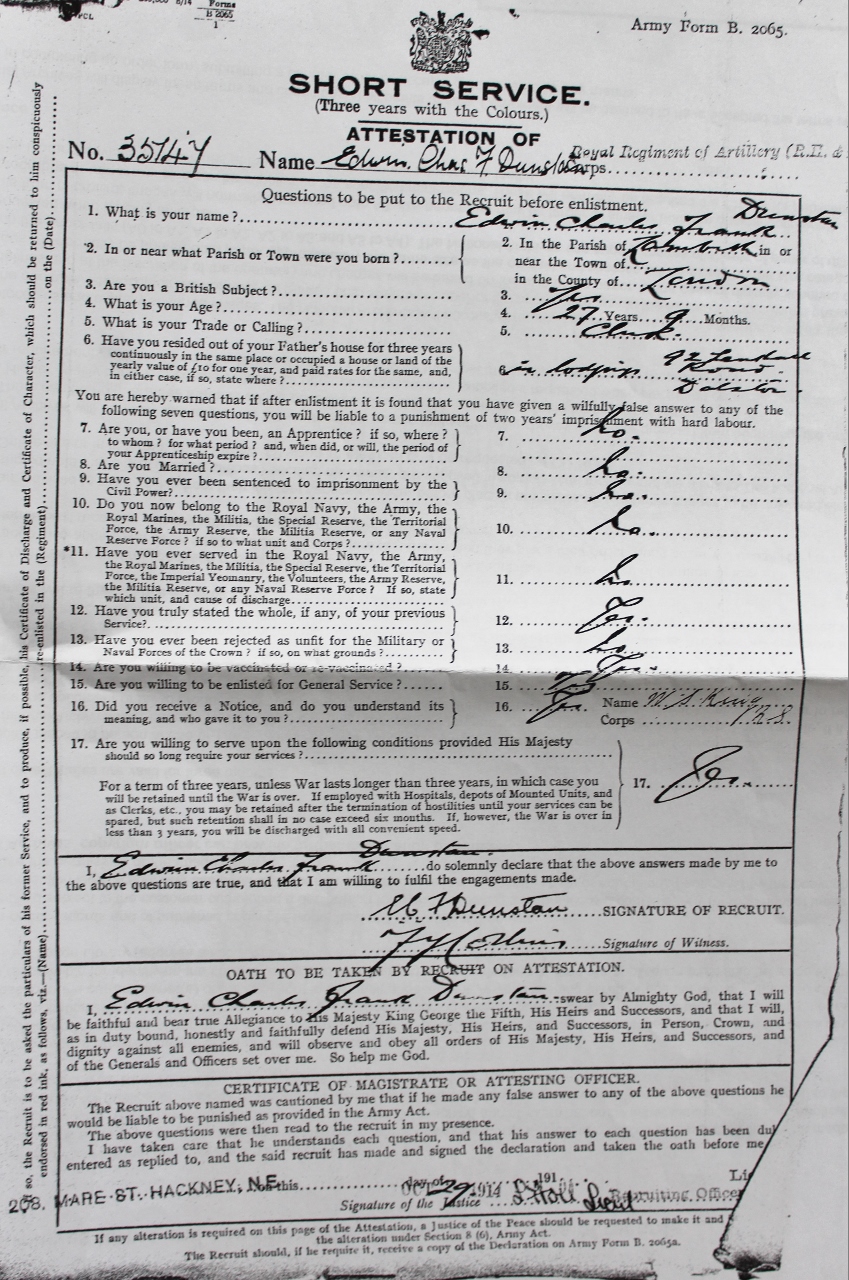 Forms
B 2065
1
Army Form B. 2065.
SHORT SERVICE.
(Three years with the Colours.)
ATTESTATION OF
No. 35147 Name Edwin Chas F Dunstan Corps Royal Regiment of Artillery (R.H. &
Questions to be put to the Recruit before enlistment.
1. What is your name? Edwin Charles Frank Dunstan
2. In or near what Parish or Town were you born? 2. In the Parish of Lambeth in or
near the Town of
in the County of London
3. Are you a British Subject? 3. Yes
4. What is your Age? 4. 27 Years 9 Months.
5. What is your Trade or Calling? 5. Clerk.
6. Have you resided out of your Father's house for three years
continuously in the same place or occupied a house or land of the
yearly value of £10 for one year, and paid rates for the same, and,
in either case, if so, state where? 6. in lodgings 92 Road Dalston
You are hereby warned that if after enlistment it is found that you have given a wilfully false answer to any of the
following seven questions, you will be liable to a punishment of two years' imprisonment with hard labour.
7. Are you, or have you been, an Apprentice? if so, where? 7. No.
to whom? for what period? and, when did, or will, the period of
your Apprenticeship expire?
8. Are you Married? 8. No.
9. Have you ever been sentenced to imprisonment by the
Civil Power? 9. No.
10. Do you now belong to the Royal Navy, the Army, the
Royal Marines, the Militia, the Special Reserve, the Territorial
Force, the Army Reserve, the Militia Reserve, or any Naval
Reserve Force? if so to what unit and Corps? 10. No.
*11. Have you ever served in the Royal Navy, the Army,
the Royal Marines, the Militia, the Special Reserve, the Territorial
Force, the Imperial Yeomanry, the Volunteers, the Army Reserve,
the Militia Reserve, or any Naval Reserve Force? If so, state
which unit, and cause of discharge 11. No.
12. Have you truly stated the whole, if any, of your previous
Service? 12. Yes.
13. Have you ever been rejected as unfit for the Military or
Naval Forces of the Crown? if so, on what grounds? 13. No.
14. Are you willing to be vaccinated or re-vaccinated? 14. Yes.
15. Are you willing to be enlisted for General Service? 15. Yes
16. Did you receive a Notice, and do you understand its
meaning, and who gave it to you? 16. Yes. Name W. S. King
Corps
17. Are you willing to serve upon the following conditions provided His Majesty
should so long require your services?
For a term of three years, unless War lasts longer than three years, in which case you
will be retained until the War is over. If employed with Hospitals, depots of Mounted Units, and
as Clerks, etc., you may be retained after the termination of hostilities until your services can be
spared, but such retention shall in no case exceed six months. If, however, the War is over in
less than 3 years, you will be discharged with all convenient speed.
17. Yes.
I, Edwin Charles Frank Dunstan do solemnly declare that the above answers made by me to
the above questions are true, and that I am willing to fulfil the engagements made.
E C F Dunstan SIGNATURE OF RECRUIT.
Signature of Witness.
OATH TO BE TAKEN BY RECRUIT ON ATTESTATION.
I, Edwin Charles Frank Dunstan swear by Almighty God, that I will
be faithful and bear true Allegiance to His Majesty King George the Fifth, His Heirs and Successors, and that I will,
as in duty bound, honestly and faithfully defend His Majesty, His Heirs, and Successors, in Person, Crown, and
dignity against all enemies, and will observe and obey all orders of His Majesty, His Heirs, and Successors, and
of the Generals and Officers set over me. So help me God.
CERTIFICATE OF MAGISTRATE OR ATTESTING OFFICER.
The Recruit above named was cautioned by me that if he made any false answer to any of the above questions he
would be liable to be punished as provided in the Army Act.
The above questions were then read to the recruit in my presence.
I have taken care that he understands each question, and that his answer to each question has been dul
entered as replied to, and the said recruit has made and signed the declaration and taken the oath before me
208, MARE ST. HACKNEY, N.E. on this day of 191
OCT 29 1914
Signature of the Justice Lieut Recruiting Officer
If any alteration is required on this page of the Attestation, a Justice of the Peace should be requested to make it and
the alteration under Section 8 (6), Army Act.
The Recruit should, if he require it, receive a copy of the Declaration on Army Form B. 2065a.
so, the Recruit is to be asked the particulars of his former Service, and to produce, if possible, his Certificate of Discharge and Certificate of Character, which should be returned to him conspicuously
endorsed in red ink, as follows, viz.—(Name) re-enlisted in the (Regiment) on the (Date)